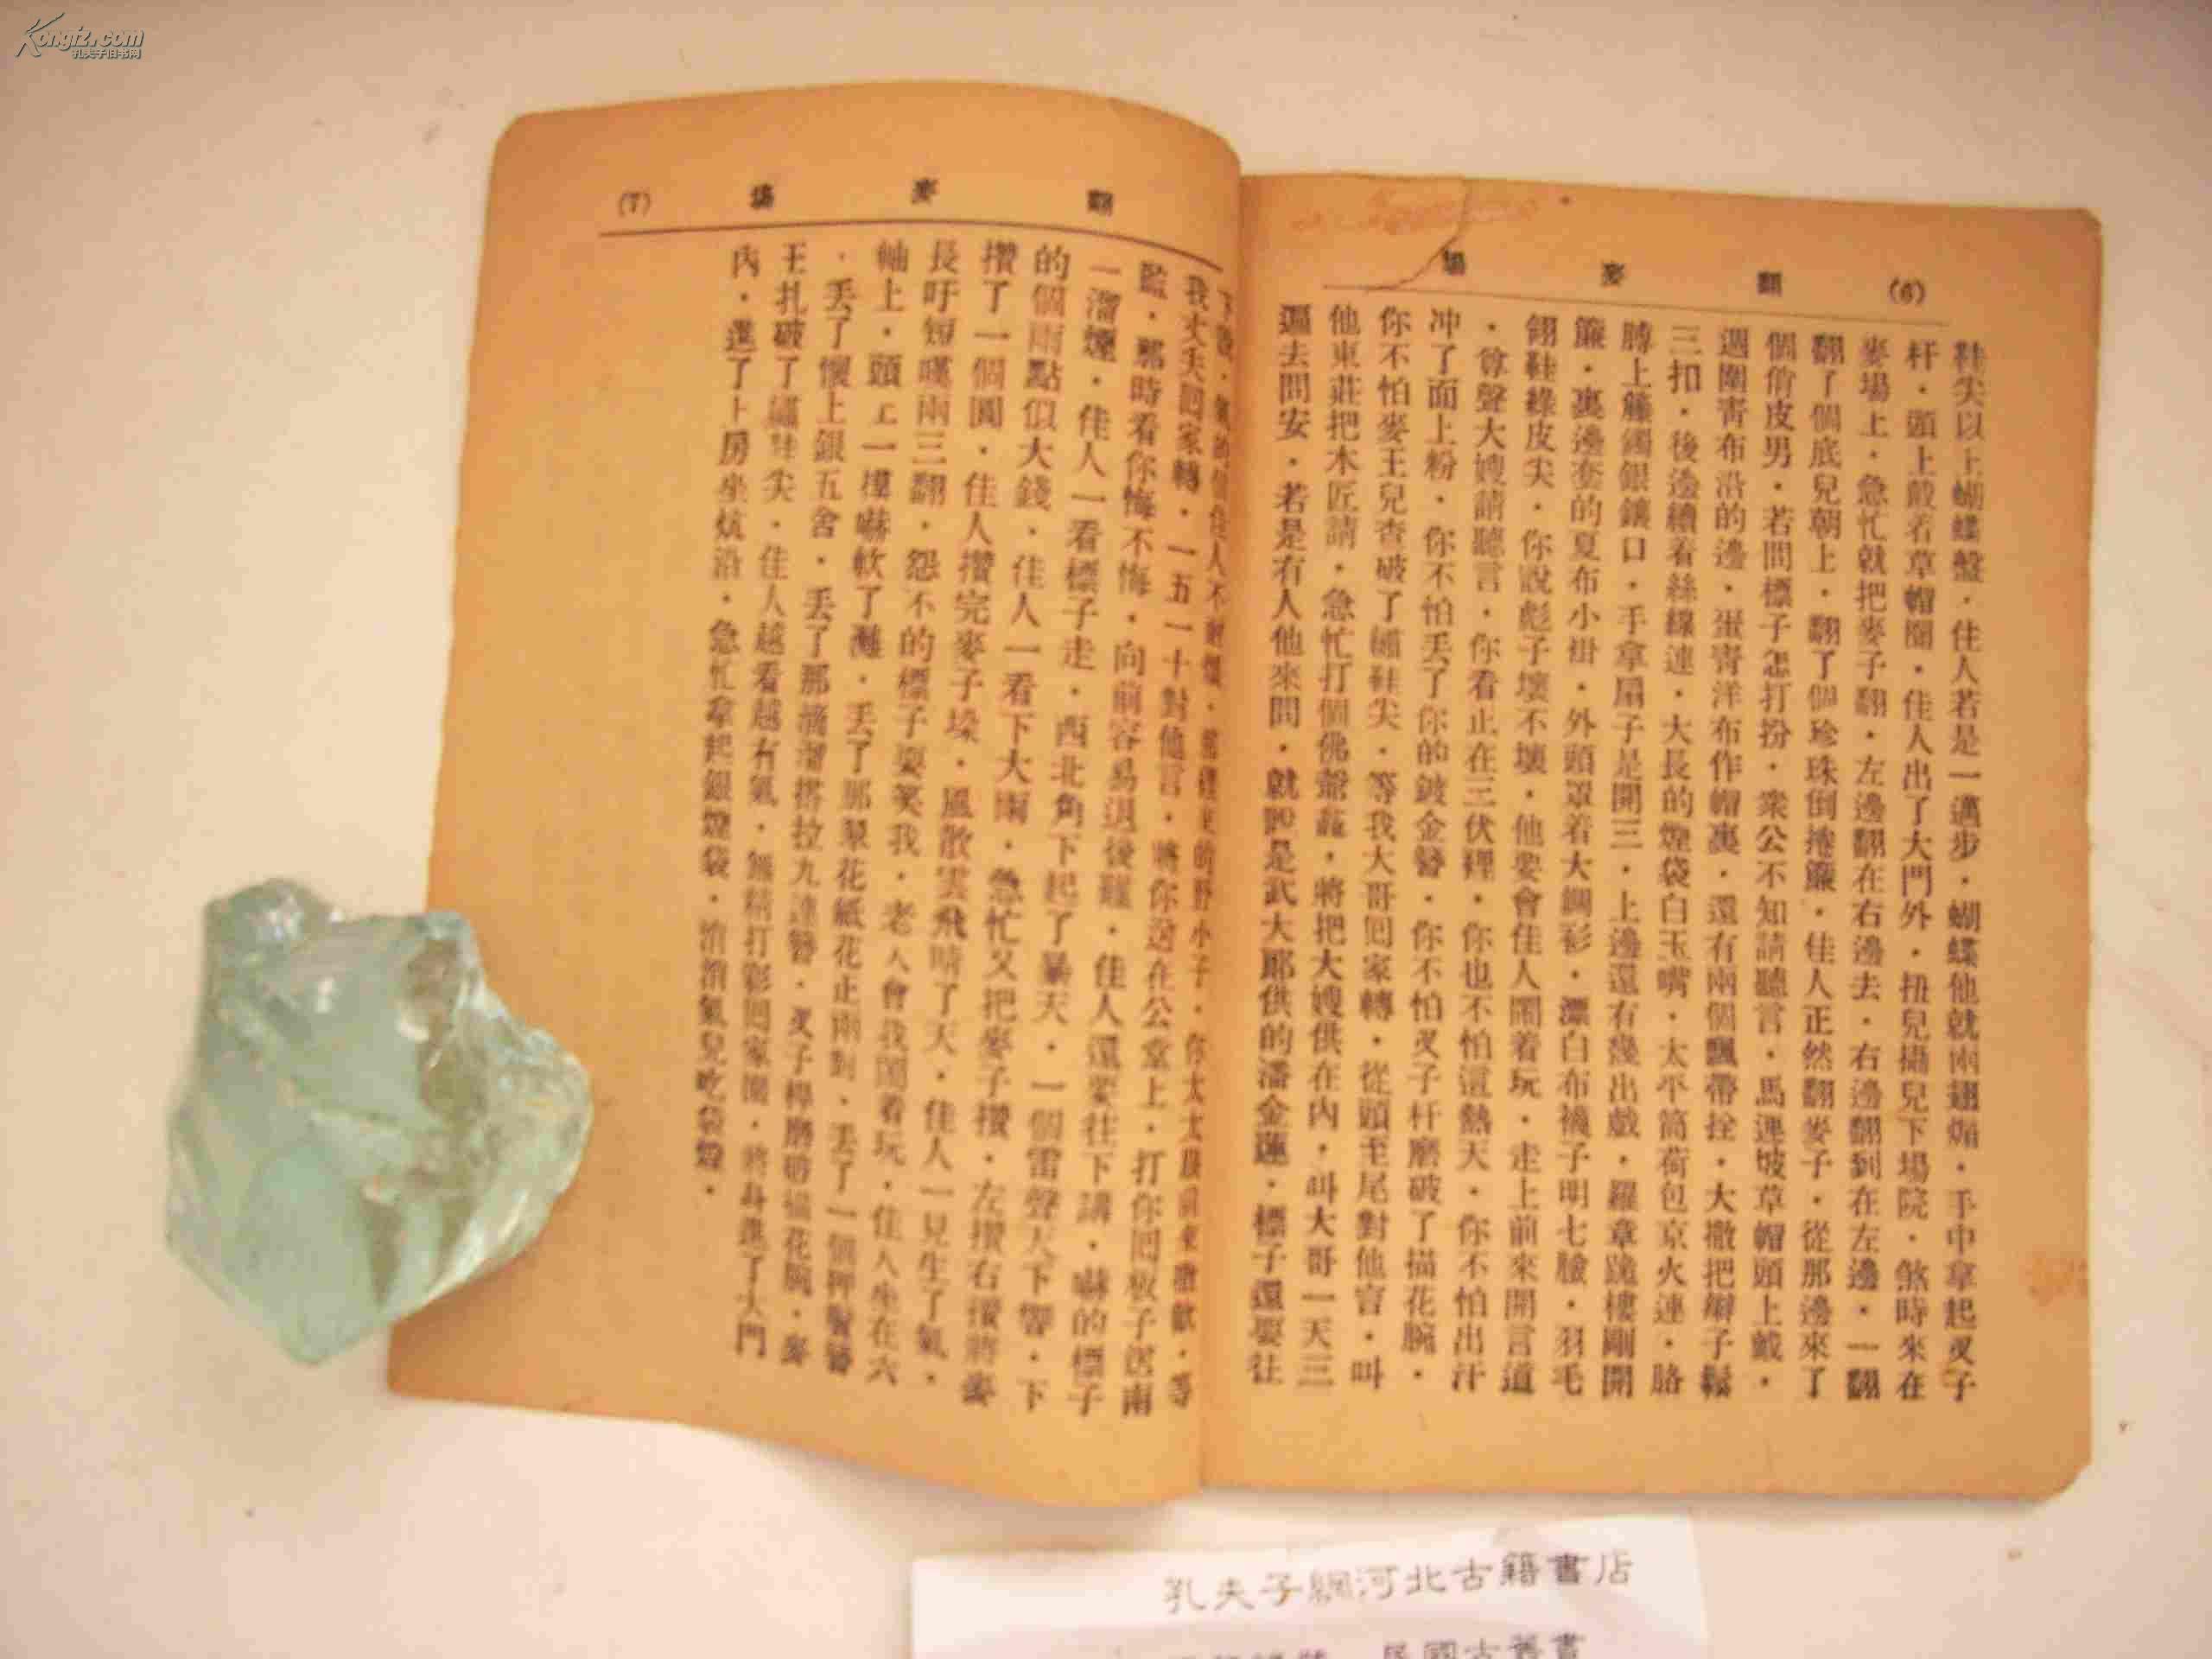 Kongfz.com
孔夫子旧书网
(6) 翻 麥 場
鞋尖以上蝴蝶盤．佳人若是一邁步．蝴蝶他就兩翅煽．手中拿起叉子
杆．頭上戴着草帽圈．佳人出了大門外．扭兒攝兒下場院．煞時來在
麥場上．急忙就把麥子翻．左邊翻在右邊去．右邊翻到在左邊．一翻
翻了個底兒朝上．翻了個珍珠倒捲簾．佳人正然翻麥子．從那邊來了
個俏皮男．若問標子怎打扮．衆公不知請聽言．馬連坡草帽頭上戴．
週圍青布沿的邊．蛋青洋布作帽裏．還有兩個飄帶拴．大撒把辮子鬆
三扣．後邊續着絲線連．大長的煙袋白玉嘴．太平筒荷包京火連．胳
膊上藤鐲銀鑲口．手拿扇子是開三．上邊還有幾出戲．羅章跪樓剛開
簾．裏邊套的夏布小褂．外頭罩着大綢衫．漂白布襪子明七臉．羽毛
翎鞋綠皮尖．你說彪子壞不壞．他要會佳人鬧着玩．走上前來開言道
．尊聲大嫂請聽言．你看止在三伏裡．你也不怕這熱天．你不怕出汗
冲了面上粉．你不怕丟了你的鍍金簪．你不怕叉子杆磨破了描花腕．
你不怕麥王兒查破了繡鞋尖．等我大哥囘家轉．從頭至尾對他言．叫
他東莊把木匠請．急忙打個佛爺龕．將把大嫂供在內．叫大哥一天三
遍去問安．若是有人他來問．就說是武大郎供的潘金蓮．標子還要往
翻 麥 場 (7)
下說．氣的個佳人不耐煩．罵聲你野小子．你太太跟前來撒歡．等
我丈夫囘家轉．一五一十對他言．將你送在公堂上．打你囘板子送南
監．那時看你悔不悔．向前容易退後難．佳人還要往下講．嚇的標子
一溜煙．佳人一看標子走．西北角下起了暴天．一個雷聲天下響．下
的個雨點似大錢．佳人一看下大雨．急忙又把麥子攢．左攢右攢將麥
攢了一個圓．佳人攢完麥子垛．風散雲飛晴了天．佳人一見生了氣．
長吁短嘆兩三翻．怨不的標子耍笑我．老人會我鬧着玩．佳人坐在六
軸上．頭上一摸嚇軟了灘．丟了那翠花紙花正兩對．丟了一個押鬢簪
．丟了懷上銀五舍．丟了那滴溜搭拉九連簪．叉子桿磨磨描花腕．麥
王扎破了繡鞋尖．佳人越看越有氣．無精打彩囘家園．將身進了大門
內．進了上房坐炕沿．急忙拿起銀煙袋．消消氣兒吃袋煙．
孔夫子網河北古籍書店
民國古舊書